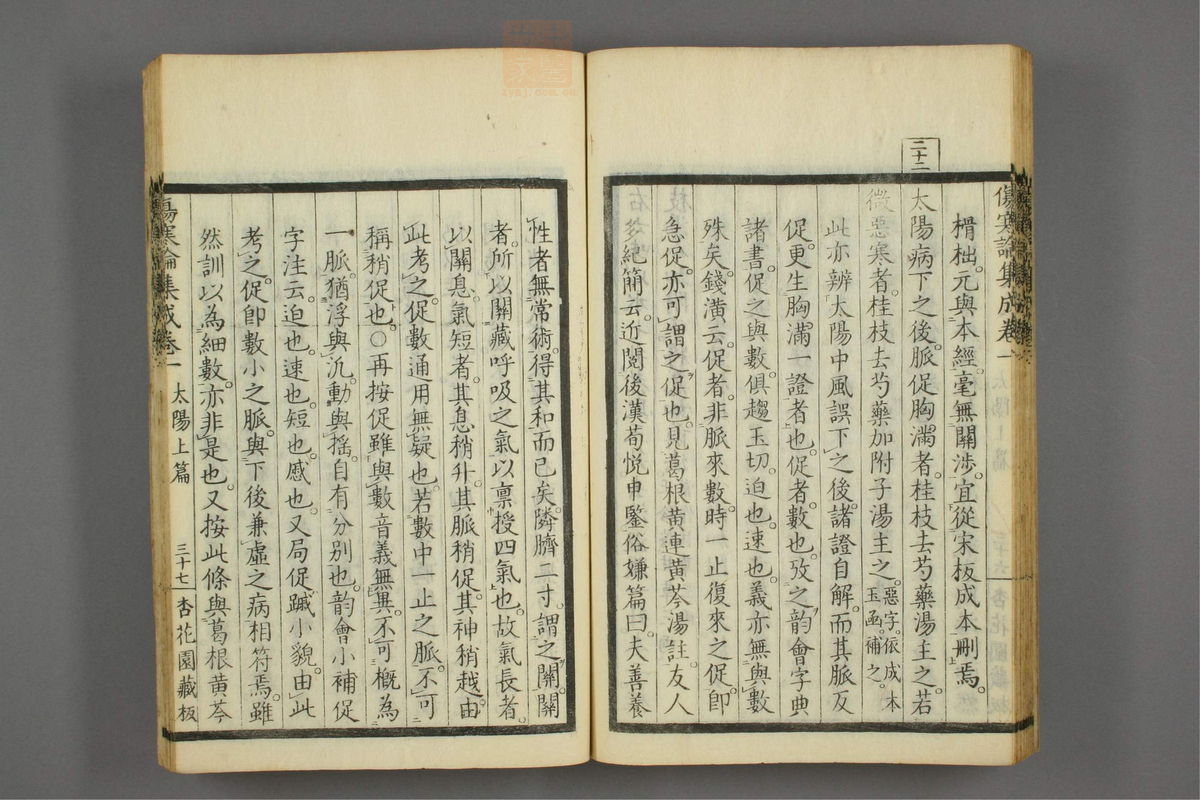 傷寒論集成卷一
榾柮元與本經毫無關涉宜從宋板成本刪焉
二十二
太陽病下之後脈促胸滿者桂枝去芍藥湯主之若
微惡寒者桂枝去芍藥加附子湯主之惡字依成本玉函補之
此亦辨太陽中風誤下之後諸證自解而其脈反
促更生胸滿一證者也促者數也攷之韵會字典
諸書促之與數俱趨玉切迫也速也義亦無與數
殊矣錢潢云促者非脈來數時一止復來之促即
急促亦可謂之促也見葛根黃連黃芩湯註友人
多紀簡云近閱後漢荀悅申鑒俗嫌篇曰夫善養
性者無常術得其和而已矣隣臍二寸謂之關關
者所以關藏呼吸之氣以禀授四氣也故氣長者
以關息氣短者其息稍升其脈稍促其神稍越由
此考之促數通用無疑也若數中一止之脈不可
稱稍促也〇再按促雖與數音義無異不可概為
一脈猶浮與沉動與搖自有分別也韵會小補促
字注云迫也速也短也慼也又局促蹴小貌由此
考之促即數小之脈與下後兼虛之病相符焉雖
然訓以為細數亦非是也又按此條與葛根黃芩
傷寒論集成卷一 太陽上篇 三十七 杏花園藏板